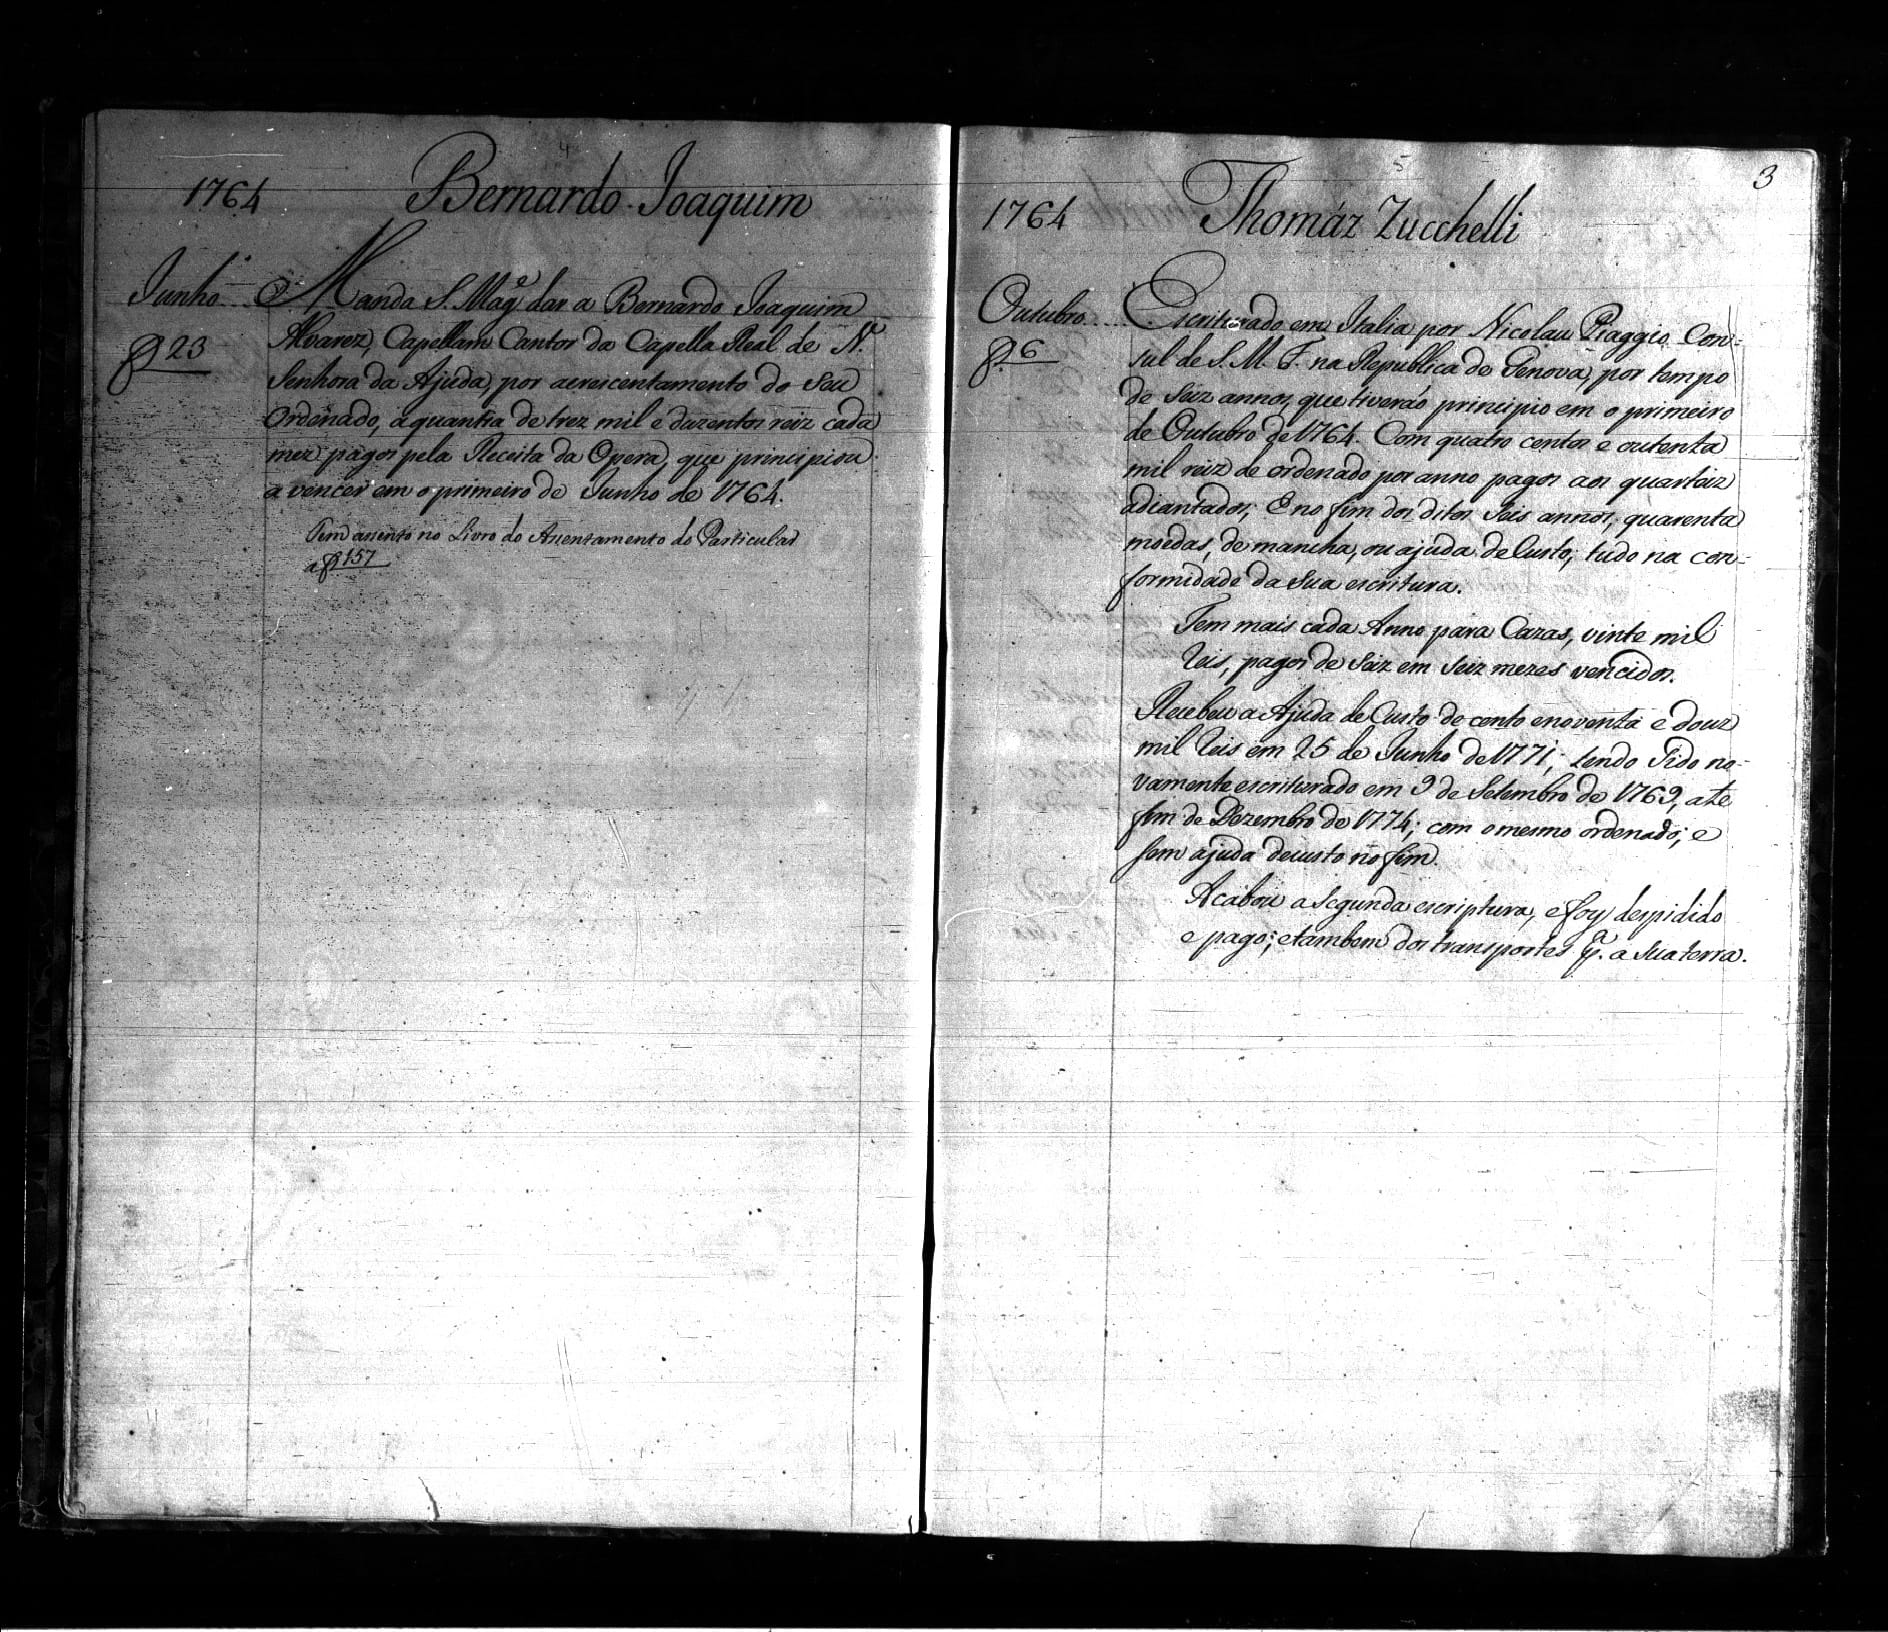 4
1764 Bernardo Joaquim
Junho Manda S. Magᵉ dar a Bernardo Joaquim
f 23 Alvarez, Capellam Cantor da Capella Real de N.
Senhora da Ajuda, por acrescentamento do Seu
Ordenado, a quantia de trez mil e duzentos reiz cada
mez pagos pela Receita da Opera, que principiou
a vencer em o primeiro de Junho de 1764.
Tem assento no Livro do Assentamento do Particular
a f 157
5
3
1764 Thomáz Zucchelli
Outubro Escriturado em Italia por Nicolau Piaggio Con=
f. 6 sul de S. M. F. na Republica de Genova, por tempo
de Seiz annos, que tiveráo principio em o primeiro
de Outubro de 1764. Com quatro centos e outenta
mil reiz de ordenado por anno pagos aos quarteiz
adiantados; E no fim dos ditos Seis annos, quarenta
moedas, de mancha, ou ajuda de Custo; tudo na con=
formidade da Sua escritura.
Tem mais cada Anno para Cazas, vinte mil
Reis, pagos de Seiz em Seiz mezes vencidos.
Recebeu a Ajuda de Custo de cento e noventa e douz
mil Reis em 25 de Junho de 1771; tendo Sido no=
vamente escriturado em 9 de Setembro de 1769, até
fim de Dezembro de 1774; com o mesmo ordenado; e
sem ajuda de custo no fim.
Acabou a Segunda escriptura, e foy despidido
e pago; e tambem dos transportes pᵃ. a Sua terra.